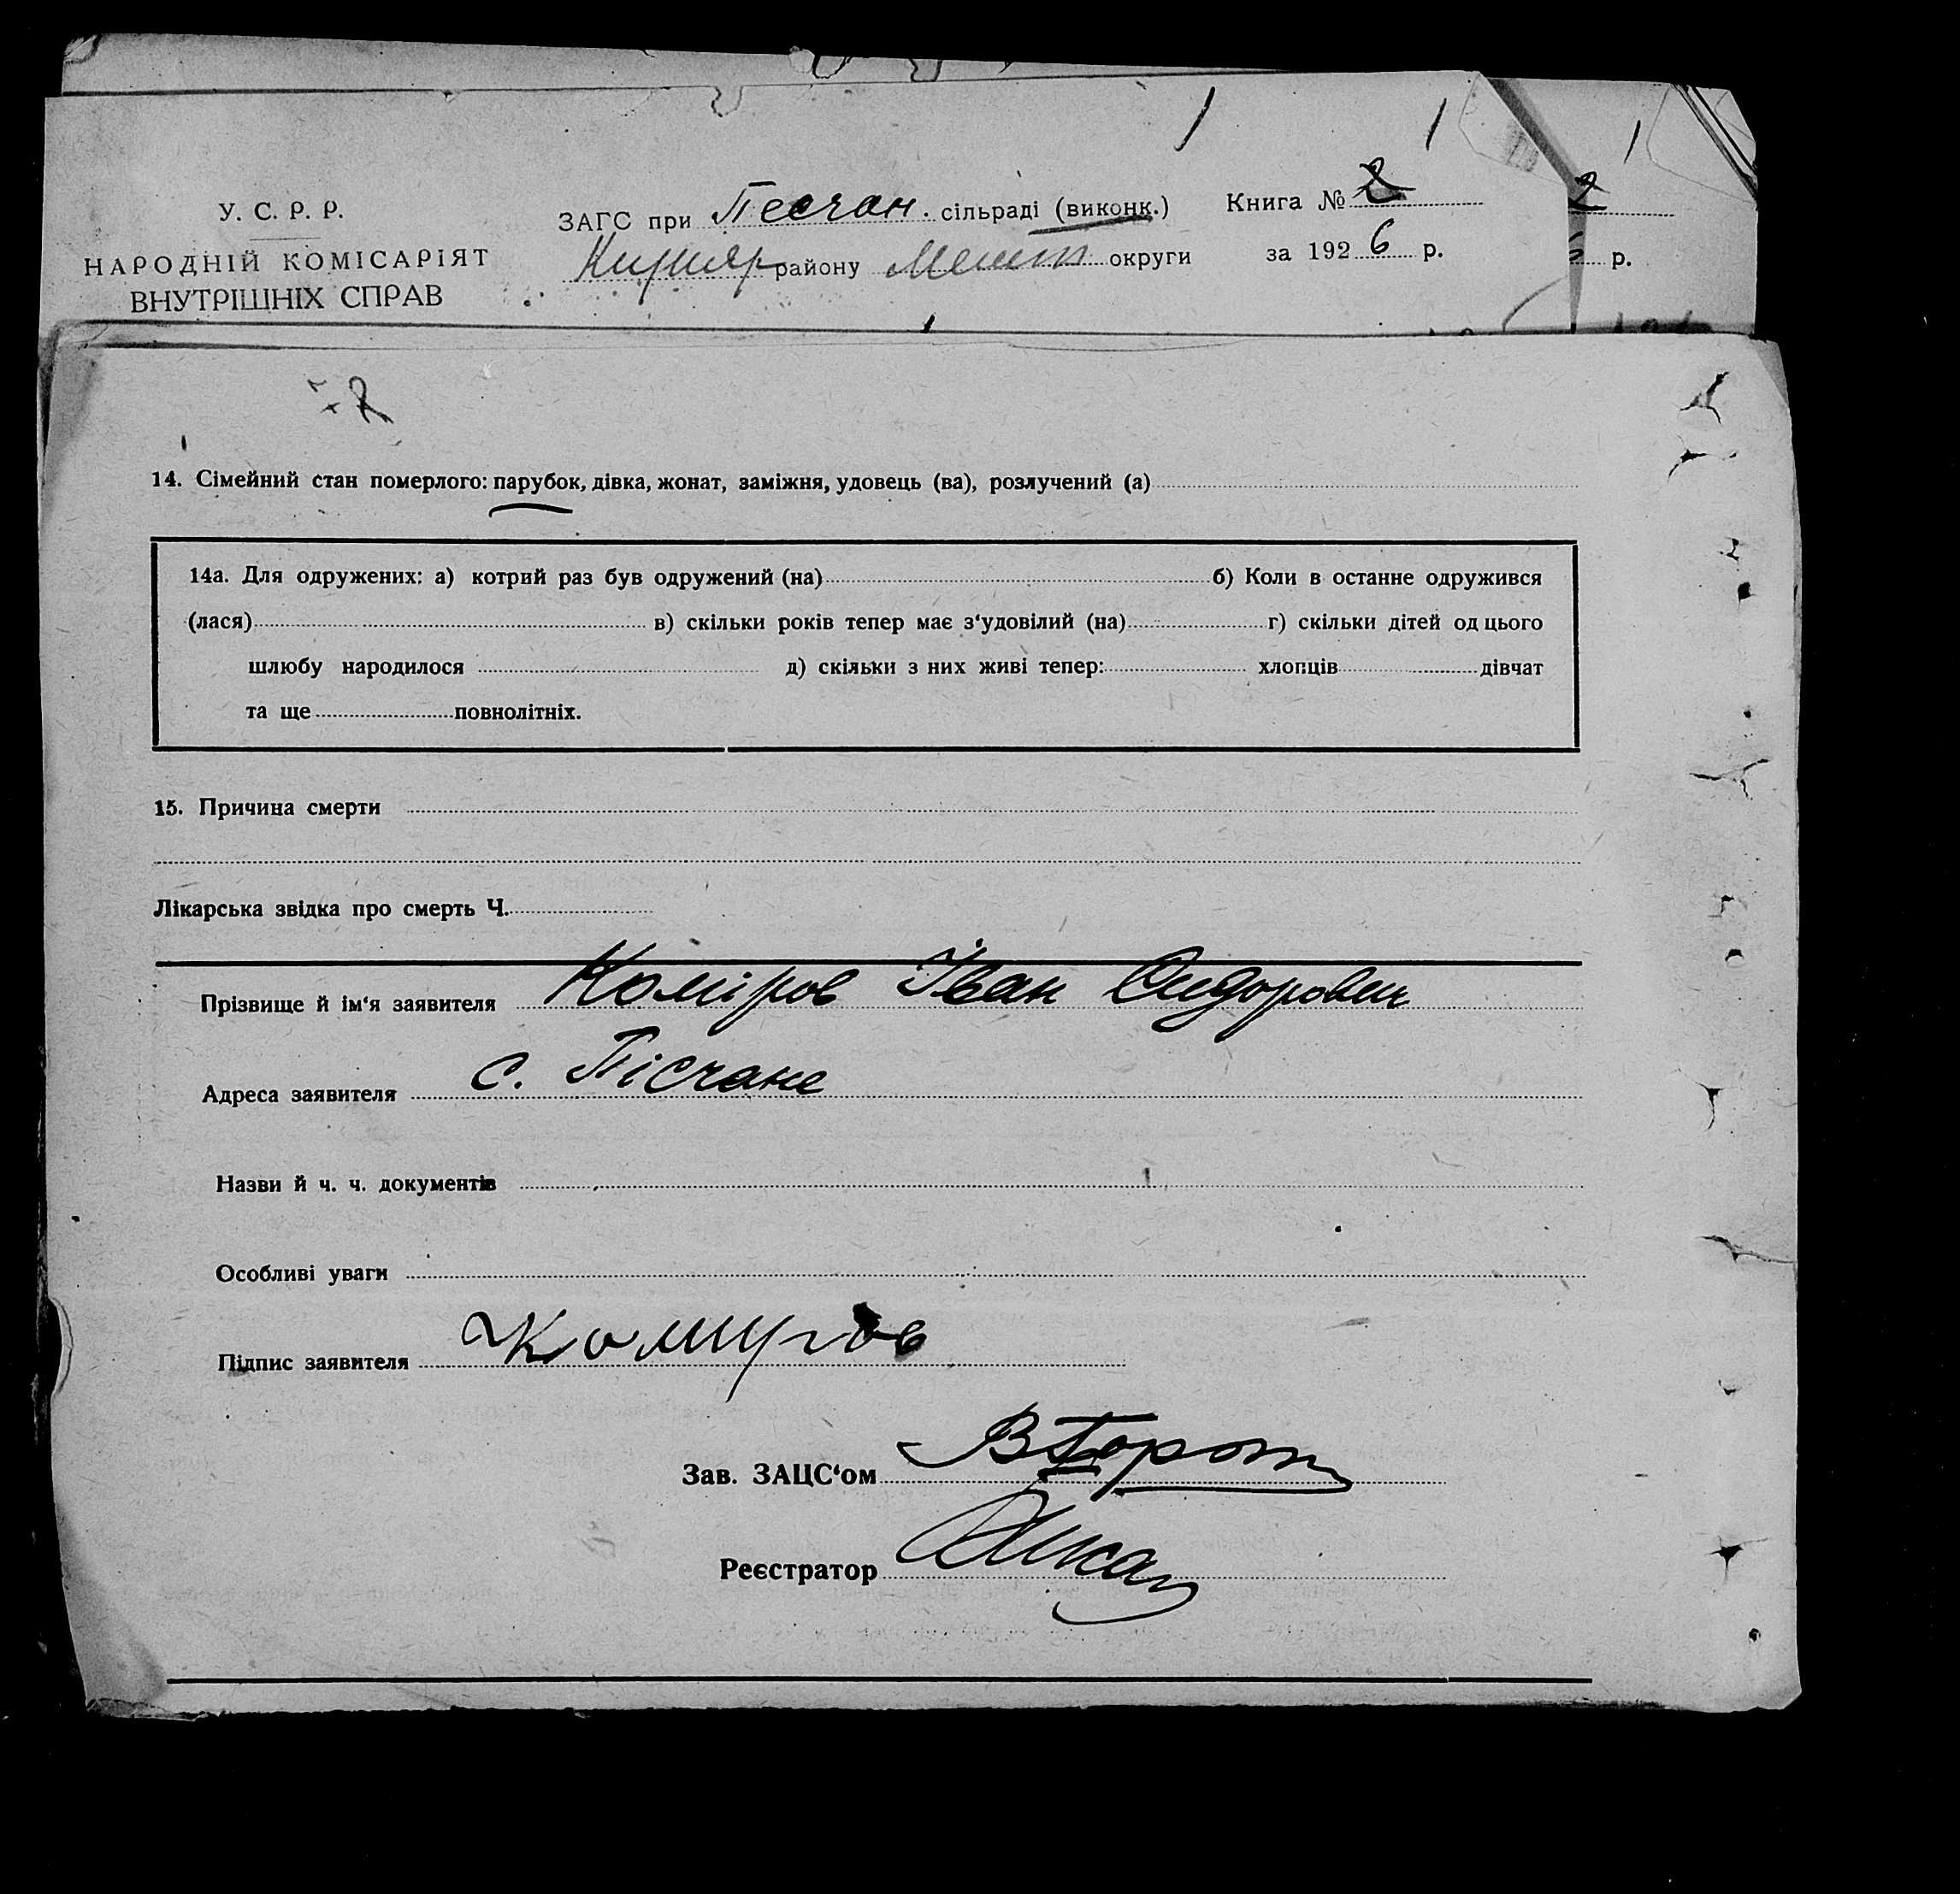 У. С. Р. Р.
НАРОДНІЙ КОМІСАРІЯТ
ВНУТРІШНІХ СПРАВ
ЗАГС при Песчан. сільраді (виконк.)
району Меліт округи
Книга № 2
за 1926 р.
2
6 р.
14. Сімейний стан померлого: парубок, дівка, жонат, заміжня, удовець (ва), розлучений (а)
14а. Для одружених: а) котрий раз був одружений (на) б) Коли в останне одружився
(лася) в) скільки років тепер має з'удовілий (на) г) скільки дітей од цього
шлюбу народилося д) скільки з них живі тепер: хлопців дівчат
та ще повнолітніх.
15. Причина смерти
Лікарська звідка про смерть Ч.
Прізвище й ім'я заявителя Коміров Іван Сидорович
Адреса заявителя с. Пісчане
Назви й ч. ч. документів
Особливі уваги
Підпис заявителя Комиров
Зав. ЗАЦС'ом
Реєстратор